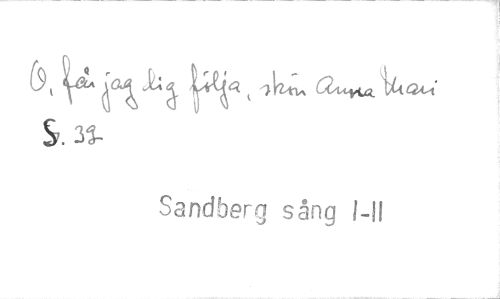 O, får jag dig följa, skön Anna Mari
S. 39
Sandberg sång I-II